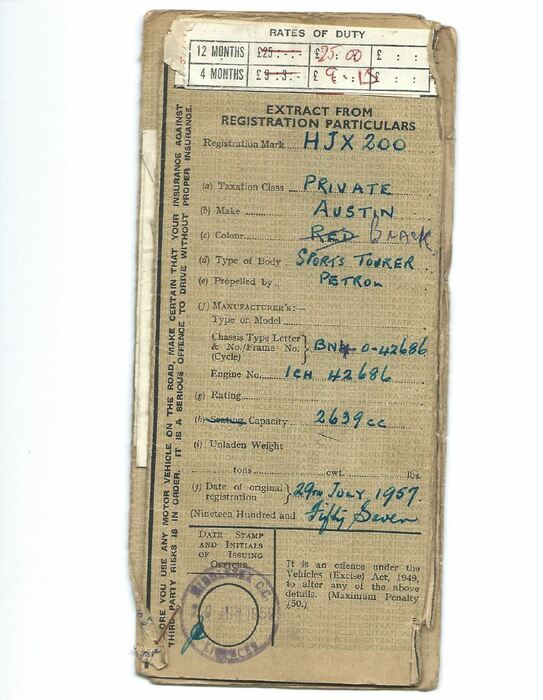 RATES OF DUTY
12 MONTHS £25 : - : - £25.00 £ : :
4 MONTHS £9 : 3 : - £ 9 . - . 15 £ : :
EXTRACT FROM
REGISTRATION PARTICULARS
Registration Mark HJX 200
(a) Taxation Class PRIVATE
(b) Make AUSTIN
(c) Colour RED BLACK
(d) Type of Body SPORTS TOURER
(e) Propelled by PETROL
(f) MANUFACTURER'S:—
Type or Model
Chassis Type Letter
& No./Frame No. BN4 O-42686
(Cycle)
Engine No. 1CH 42686
(g) Rating
(h) Seating Capacity 2639cc
(i) Unladen Weight
tons cwt. lbs.
(j) Date of original
registration 29TH JULY 1957
(Nineteen Hundred and Fifty Seven
DATE STAMP
AND INITIALS
OF ISSUING
OFFICER
It is an offence under the
Vehicles (Excise) Act, 1949,
to alter any of the above
details. (Maximum Penalty
£50.)
MIDDLESEX C.C.
LICENCES
ORE YOU USE ANY MOTOR VEHICLE ON THE ROAD, MAKE CERTAIN THAT YOUR INSURANCE AGAINST
THIRD PARTY RISKS IS IN ORDER. IT IS A SERIOUS OFFENCE TO DRIVE WITHOUT PROPER INSURANCE.